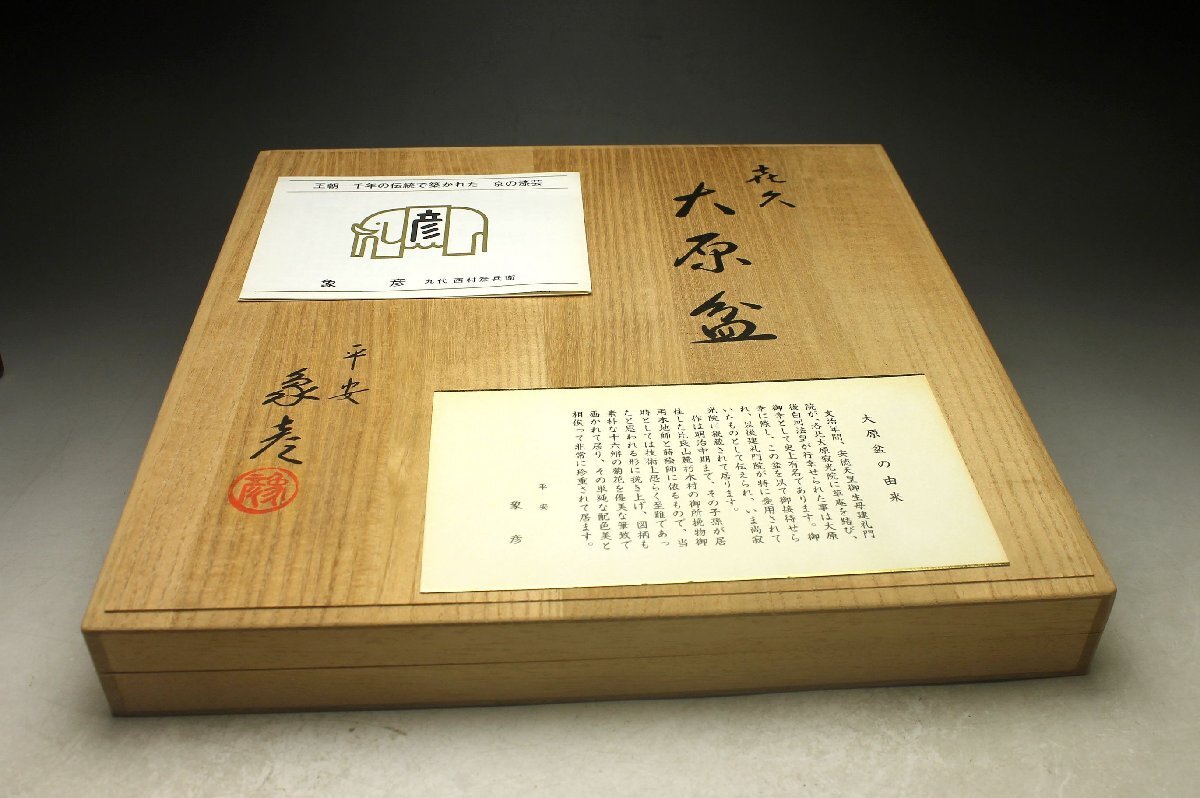 喜久
大原盆
平安
象彦
王朝 千年の伝統で築かれた 京の漆芸
彦
象彦 九代 西村彦兵衛
大原盆の由来
文治年間、安徳天皇御生母建礼門
院が、洛北大原寂光院に草庵を結び、
後白河法皇が行幸せられた事は大原
御幸として史上有名であります。御
幸に際し、この盆を以て御接待せら
れ、以後建礼門院が特に愛用されて
いたものとして伝えられ、いま尚寂
光院に襲蔵されて居ります。
作は明治中期まで、その子孫が居
住した比良山麓朽木村の御所挽物御
用木地師と蒔絵師に依るもので、当
時としては技術上恐らく至難であっ
たと思われる形に挽き上げ、図柄も
素朴な十六弁の菊花を優美な筆致で
画かれて居り、その単純な配色美と
相俟って非常に珍重されて居ます。
平安
象彦